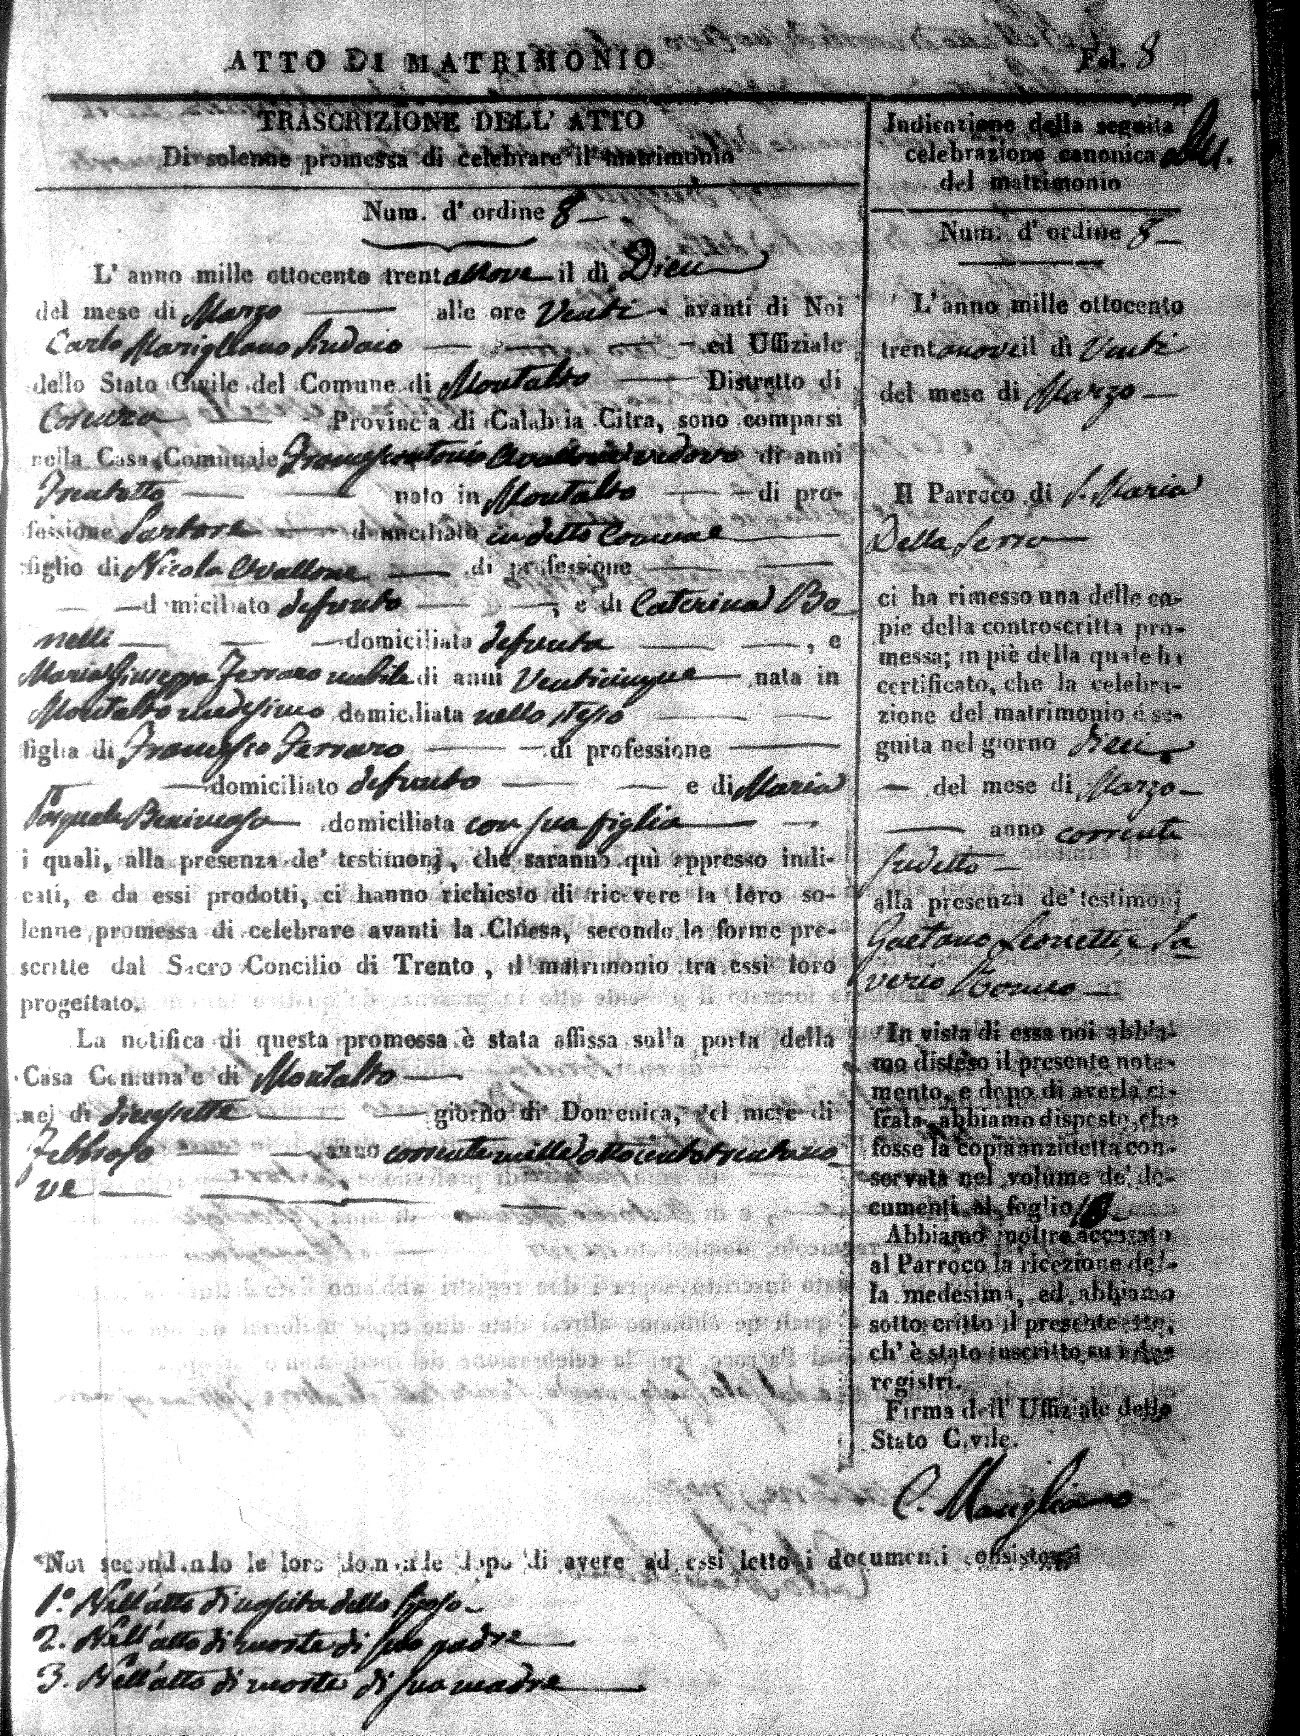 ATTO DI MATRIMONIO
Fol. 8
TRASCRIZIONE DELL' ATTO
Di solenne promessa di celebrare il matrimonio
Num. d' ordine 8
L' anno mille ottocento trentanove il dì Dieci
del mese di Marzo alle ore Venti avanti di Noi
Carlo Marigliano Sindaco ed Uffiziale
dello Stato Civile del Comune di Montalto Distretto di
Cosenza Provincia di Calabria Citra, sono comparsi
nella Casa Comunale Francescantonio Avallone vedovo di anni
Trentotto nato in Montalto di pro-
fessione Sartore domiciliato in detto Comune
figlio di Nicola Avallone di professione
domiciliato defunto , e di Caterina Bo
nelli domiciliata defunta , e
Maria Giuseppa Ferraro nubile di anni Venticinque nata in
Montalto medesimo domiciliata nello stesso
figlia di Francesco Ferraro di professione
domiciliato defunto e di Maria
Pasquale domiciliata con sua figlia
i quali, alla presenza de' testimonj, che saranno quì appresso indi-
cati, e da essi prodotti, ci hanno richiesto di ricevere la loro so-
lenne promessa di celebrare avanti la Chiesa, secondo le forme pre-
scritte dal Sacro Concilio di Trento, il matrimonio tra essi loro
progettato.
La notifica di questa promessa è stata affissa sulla porta della
Casa Comunale di Montalto
nel dì diecisette giorno di Domenica, del mese di
Febbrajo anno corrente mille ottocento trentano
ve
Indicazione della seguita
celebrazione canonica
del matrimonio
Num. d' ordine 8
L' anno mille ottocento
trentanove il dì Venti
del mese di Marzo
Il Parroco di S. Maria
Della Serra
ci ha rimesso una delle co-
pie della controscritta pro-
messa; in piè della quale ha
certificato, che la celebra-
zione del matrimonio è se-
guita nel giorno dieci
del mese di Marzo
anno corrente
sudetto
alla presenza de' testimonj
Gaetano Leonetti, e Sa
verio
In vista di essa noi abbia-
mo disteso il presente nota-
mento, e dopo di averla ci-
frata, abbiamo disposto, che
fosse la copia anzidetta con-
servata nel volume de' do-
cumenti al foglio 8
Abbiamo inoltre accusato
al Parroco la ricezione del-
la medesima, ed abbiamo
sottoscritto il presente atto,
ch' è stato inscritto su i due
registri.
Firma dell' Uffiziale dello
Stato Civile.
C. Marigliano
Noi secondando le loro domande dopo di avere ad essi letto i documenti consistenti
1.° Nell'atto di nascita dello Sposo
2. Nell'atto di morte di suo padre
3. Nell'atto di morte di sua madre